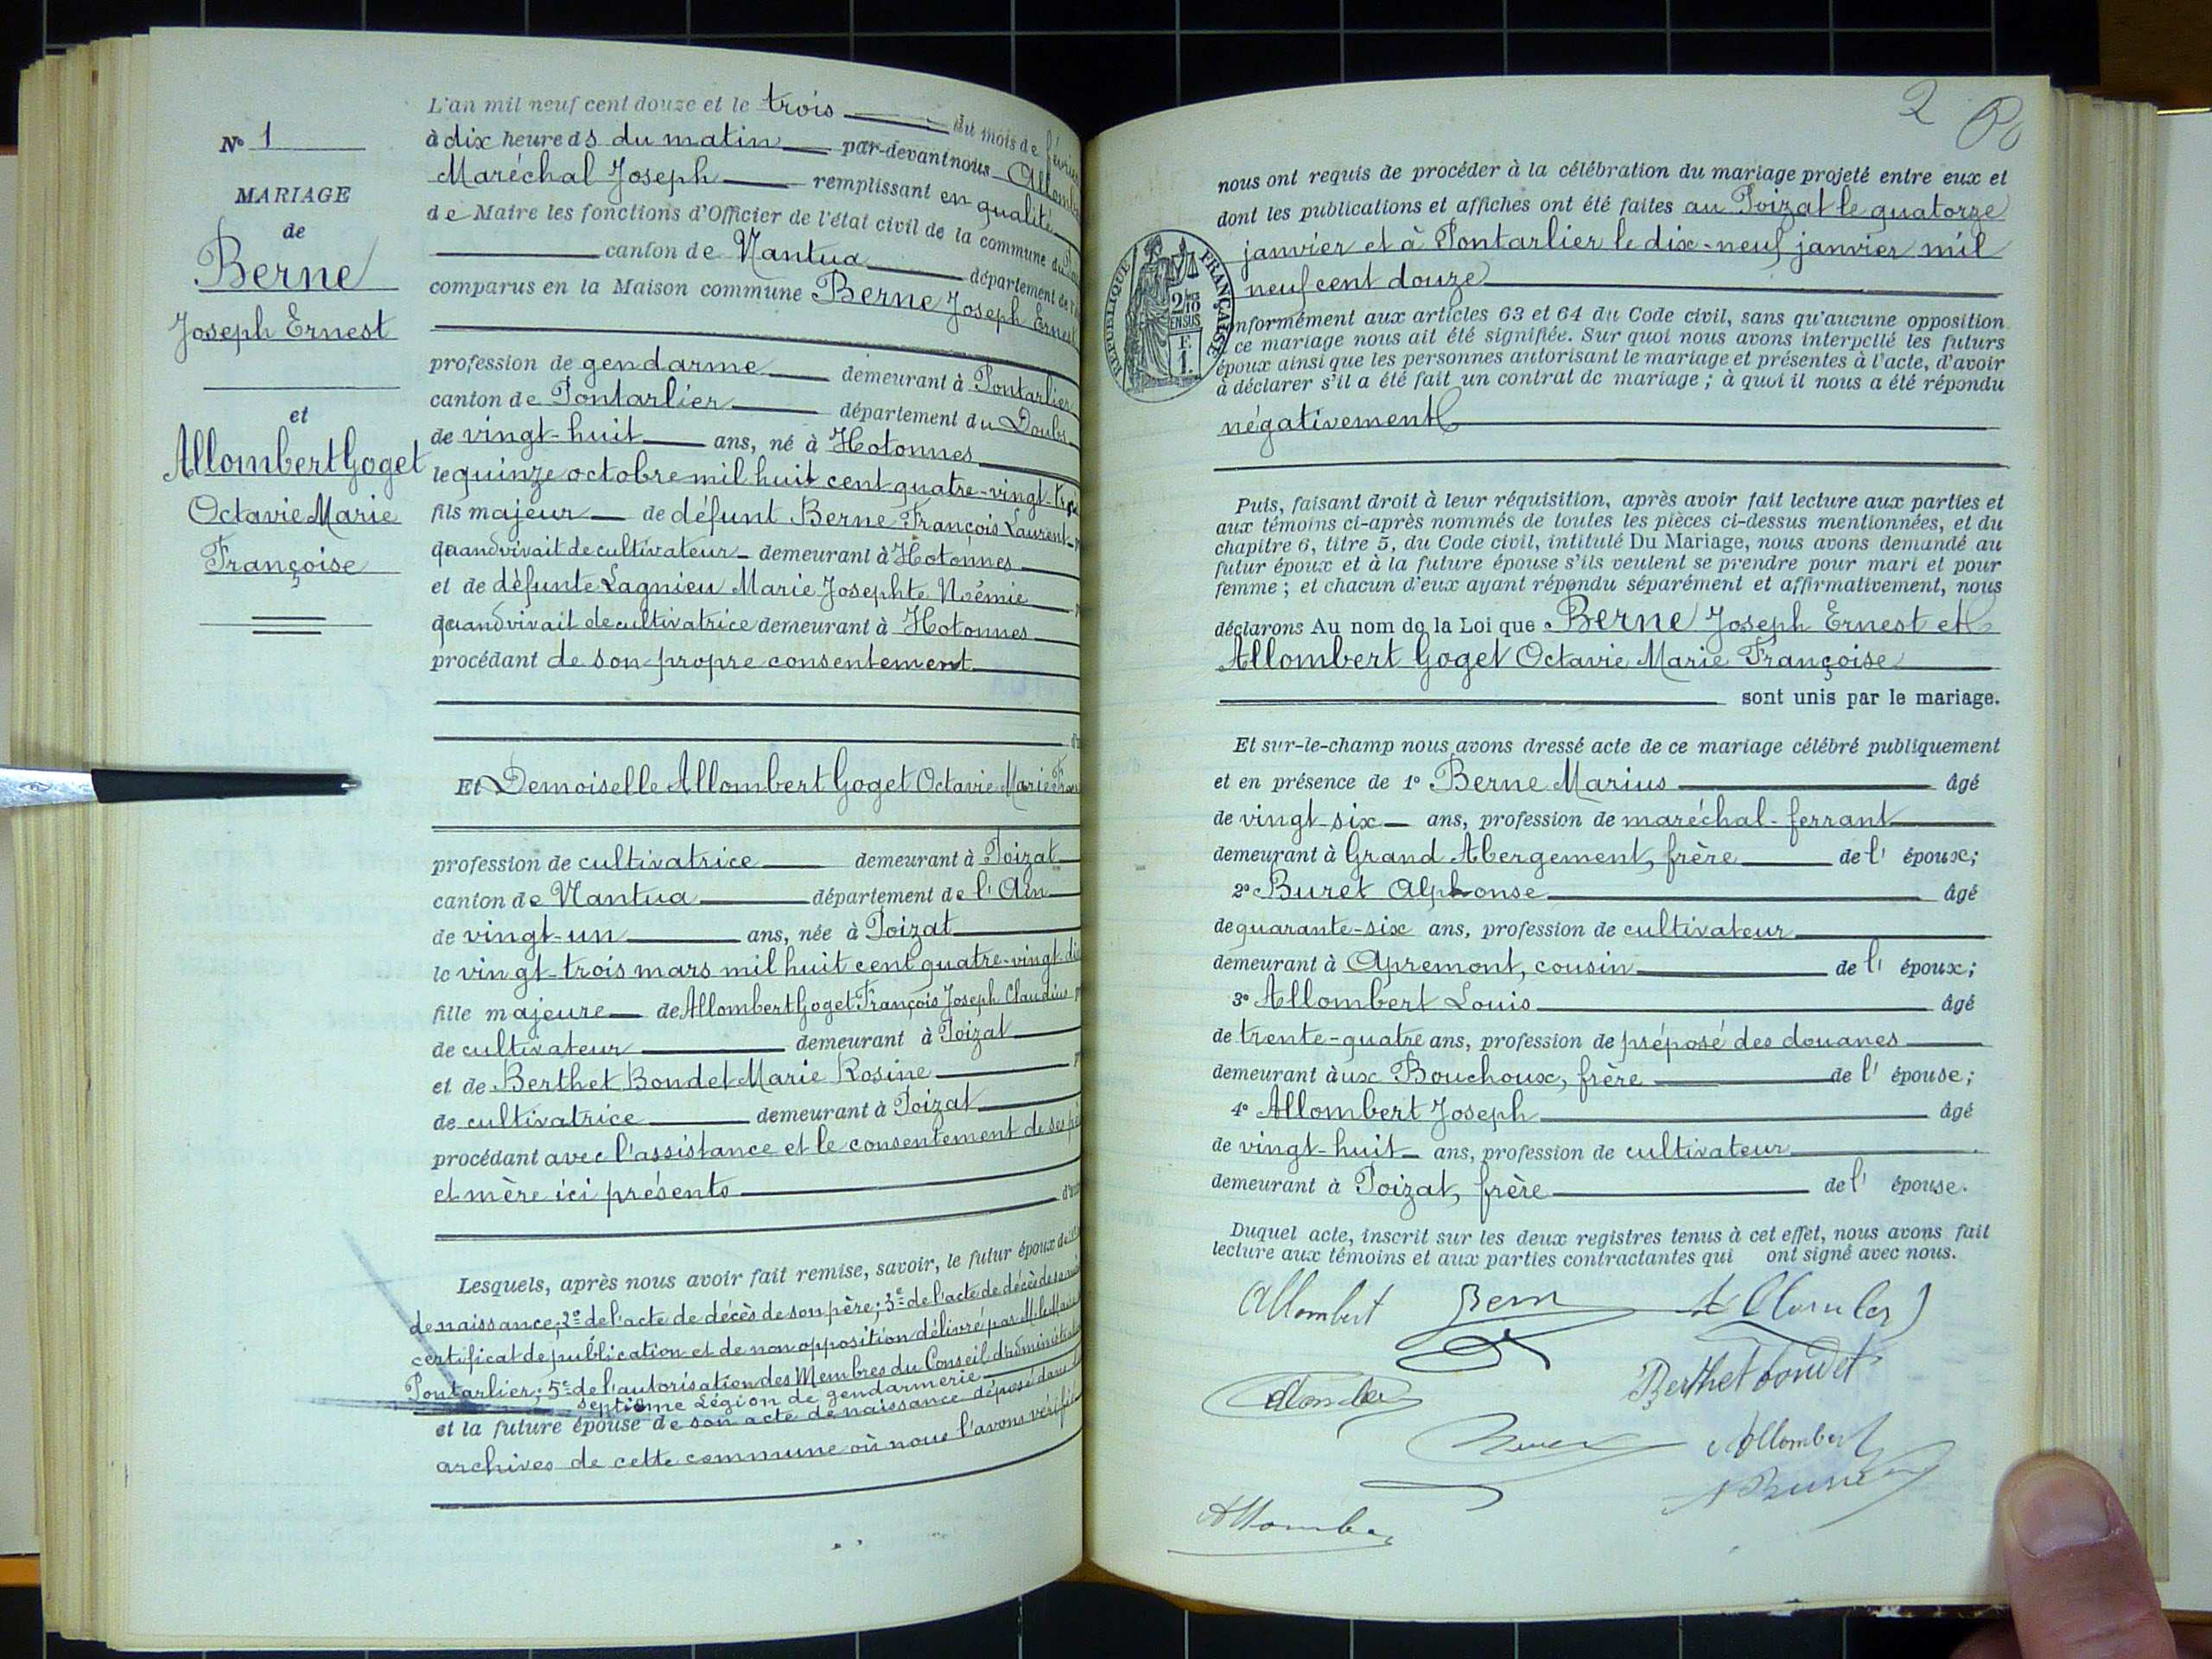 N° 1
MARIAGE
de
Berne
Joseph Ernest
et
Allombert Goget
Octavie Marie
Françoise
L'an mil neuf cent douze et le trois du mois de février
à dix heures du matin par-devant nous
Maréchal Joseph remplissant en qualité
de Maire les fonctions d'Officier de l'état civil de la commune du
canton de Nantua département de
comparus en la Maison commune Berne Joseph Ernest
profession de gendarme demeurant à Pontarlier
canton de Pontarlier département du Doubs
de vingt-huit ans, né à Hotonnes
le quinze octobre mil huit cent quatre-vingt-trois
fils majeur de défunt Berne François Laurent
quand vivait de cultivateur demeurant à Hotonnes
et de défunte Lagnieu Marie Josephte Noémie
quand vivait de cultivatrice demeurant à Hotonnes
procédant de son propre consentement
Et Demoiselle Allombert Goget Octavie Marie
profession de cultivatrice demeurant à Poizat
canton de Nantua département de l'Ain
de vingt-un ans, née à Poizat
le vingt-trois mars mil huit cent quatre-vingt
fille majeure de Allombert Goget François Joseph Claudius
de cultivateur demeurant à Poizat
et de Berthet Bondet Marie Rosine
de cultivatrice demeurant à Poizat
procédant avec l'assistance et le consentement de ses
et mère ici présents
Lesquels, après nous avoir fait remise, savoir, le futur époux de
de naissance; 2° de l'acte de décès de son père; 3e de l'acte de décès de sa
certificat de publication et de non opposition délivré par M. le Maire
Pontarlier; 5e de l'autorisation des Membres du Conseil
septième Légion de gendarmerie
et la future épouse de son acte de naissance déposé dans
archives de cette commune où nous l'avons vérifié
2
RÉPUBLIQUE FRANÇAISE
2/10
EN SUS
F.
1.
nous ont requis de procéder à la célébration du mariage projeté entre eux et
dont les publications et affiches ont été faites au Poizat le quatorze
janvier et à Pontarlier le dix-neuf janvier mil
neuf cent douze
onformément aux articles 63 et 64 du Code civil, sans qu'aucune opposition
ce mariage nous ait été signifiée. Sur quoi nous avons interpellé les futurs
époux ainsi que les personnes autorisant le mariage et présentes à l'acte, d'avoir
à déclarer s'il a été fait un contrat de mariage ; à quoi il nous a été répondu
négativement
Puis, faisant droit à leur réquisition, après avoir fait lecture aux parties et
aux témoins ci-après nommés de toutes les pièces ci-dessus mentionnées, et du
chapitre 6, titre 5, du Code civil, intitulé Du Mariage, nous avons demandé au
futur époux et à la future épouse s'ils veulent se prendre pour mari et pour
femme ; et chacun d'eux ayant répondu séparément et affirmativement, nous
déclarons Au nom de la Loi que Berne Joseph Ernest et
Allombert Goget Octavie Marie Françoise
sont unis par le mariage.
Et sur-le-champ nous avons dressé acte de ce mariage célébré publiquement
et en présence de 1° Berne Marius âgé
de vingt-six ans, profession de maréchal-ferrant
demeurant à Grand Abergement, frère de l' époux;
2° Buret Alphonse âgé
de quarante-six ans, profession de cultivateur
demeurant à Apremont, cousin de l' époux;
3° Allombert Louis âgé
de trente-quatre ans, profession de préposé des douanes
demeurant aux Bouchoux, frère de l' épouse;
4° Allombert Joseph âgé
de vingt-huit ans, profession de cultivateur
demeurant à Poizat, frère de l' épouse.
Duquel acte, inscrit sur les deux registres tenus à cet effet, nous avons fait
lecture aux témoins et aux parties contractantes qui ont signé avec nous.
Allombert
Berthet bondet
Allombert